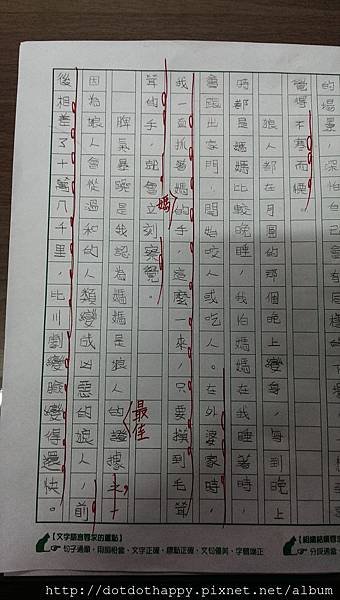 的場景，深怕自己會
覺得不寒而慄。
狼人都在月圓的那個晚上變身，每到晚上
時都是媽媽比較晚睡，我怕媽媽在我睡著時，
會踹出家門，開始咬人或吃人。在外婆家時，
我一直抓著媽媽的手，這麼一來，只要摸到毛茸
茸的手，就會立刻察覺。
脾氣暴躁是我認為媽媽是狼人的最佳證據，
因為狼人會從溫和的人類變成凶惡的狼人，前
後相差了十萬八千里，比川劇變臉變得還快。
【文字語言尋求的重點】
句子通順，用詞恰當，文字正確，標點正確，文句優美，字體端正
http://dotdothappy.pixnet.net/album